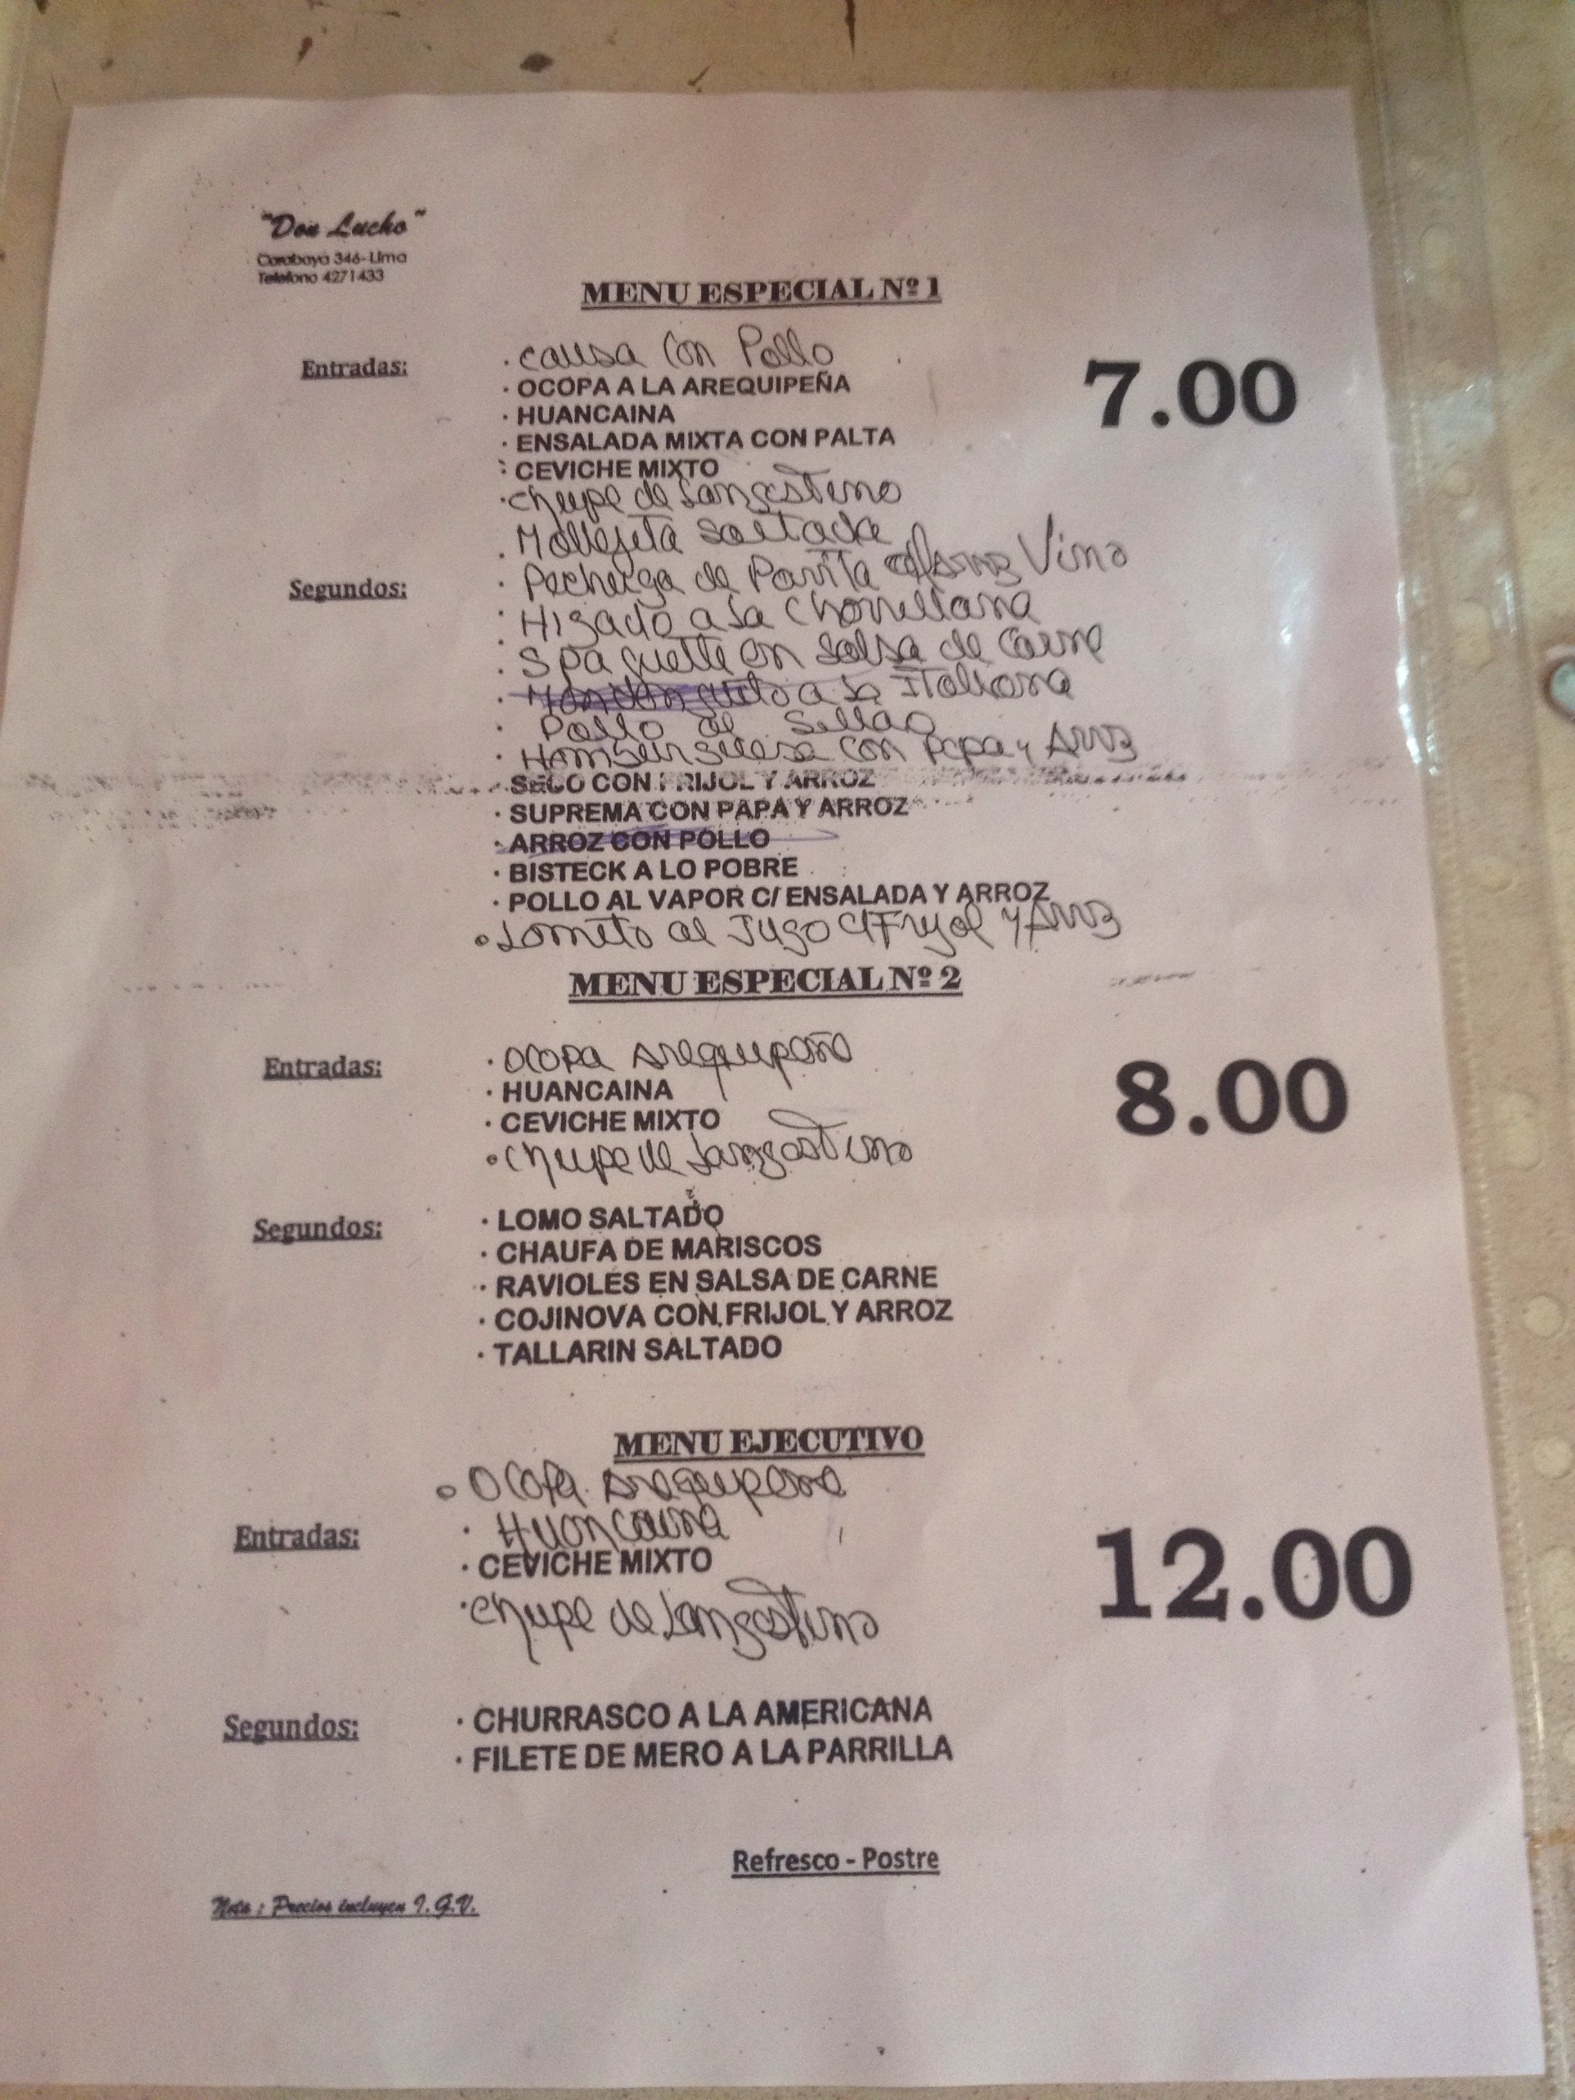 "Don Lucho"
Carabaya 346-Lima
Telefono 4271433
MENU ESPECIAL Nº 1
Entradas:
· Causa Con Pollo
· OCOPA A LA AREQUIPEÑA
· HUANCAINA
· ENSALADA MIXTA CON PALTA
· CEVICHE MIXTO
· Chupe de Langostino
7.00
Segundos:
· Mollejita Saltada
· Pechuga de Parrilla Arroz Vino
· Higado a la Chorrillana
· Spaguetti en Salsa de Carne
· Mondonguito a la Italiana
· Pollo al Sillao
· Hamburguesa con Papa y Arroz
· SECO CON FRIJOL Y ARROZ
· SUPREMA CON PAPA Y ARROZ
· ARROZ CON POLLO
· BISTECK A LO POBRE
· POLLO AL VAPOR C/ ENSALADA Y ARROZ
· Lomito al Jugo C/Frijol y Arroz
MENU ESPECIAL Nº 2
Entradas:
· Ocopa Arequipeña
· HUANCAINA
· CEVICHE MIXTO
· Chupe de Langostino
8.00
Segundos:
· LOMO SALTADO
· CHAUFA DE MARISCOS
· RAVIOLES EN SALSA DE CARNE
· COJINOVA CON FRIJOL Y ARROZ
· TALLARIN SALTADO
MENU EJECUTIVO
Entradas:
· Ocopa Arequipena
· Huancaina
· CEVICHE MIXTO
· Chupe de Langostino
12.00
Segundos:
· CHURRASCO A LA AMERICANA
· FILETE DE MERO A LA PARRILLA
Refresco - Postre
Nota : Precios incluyen I.G.V.